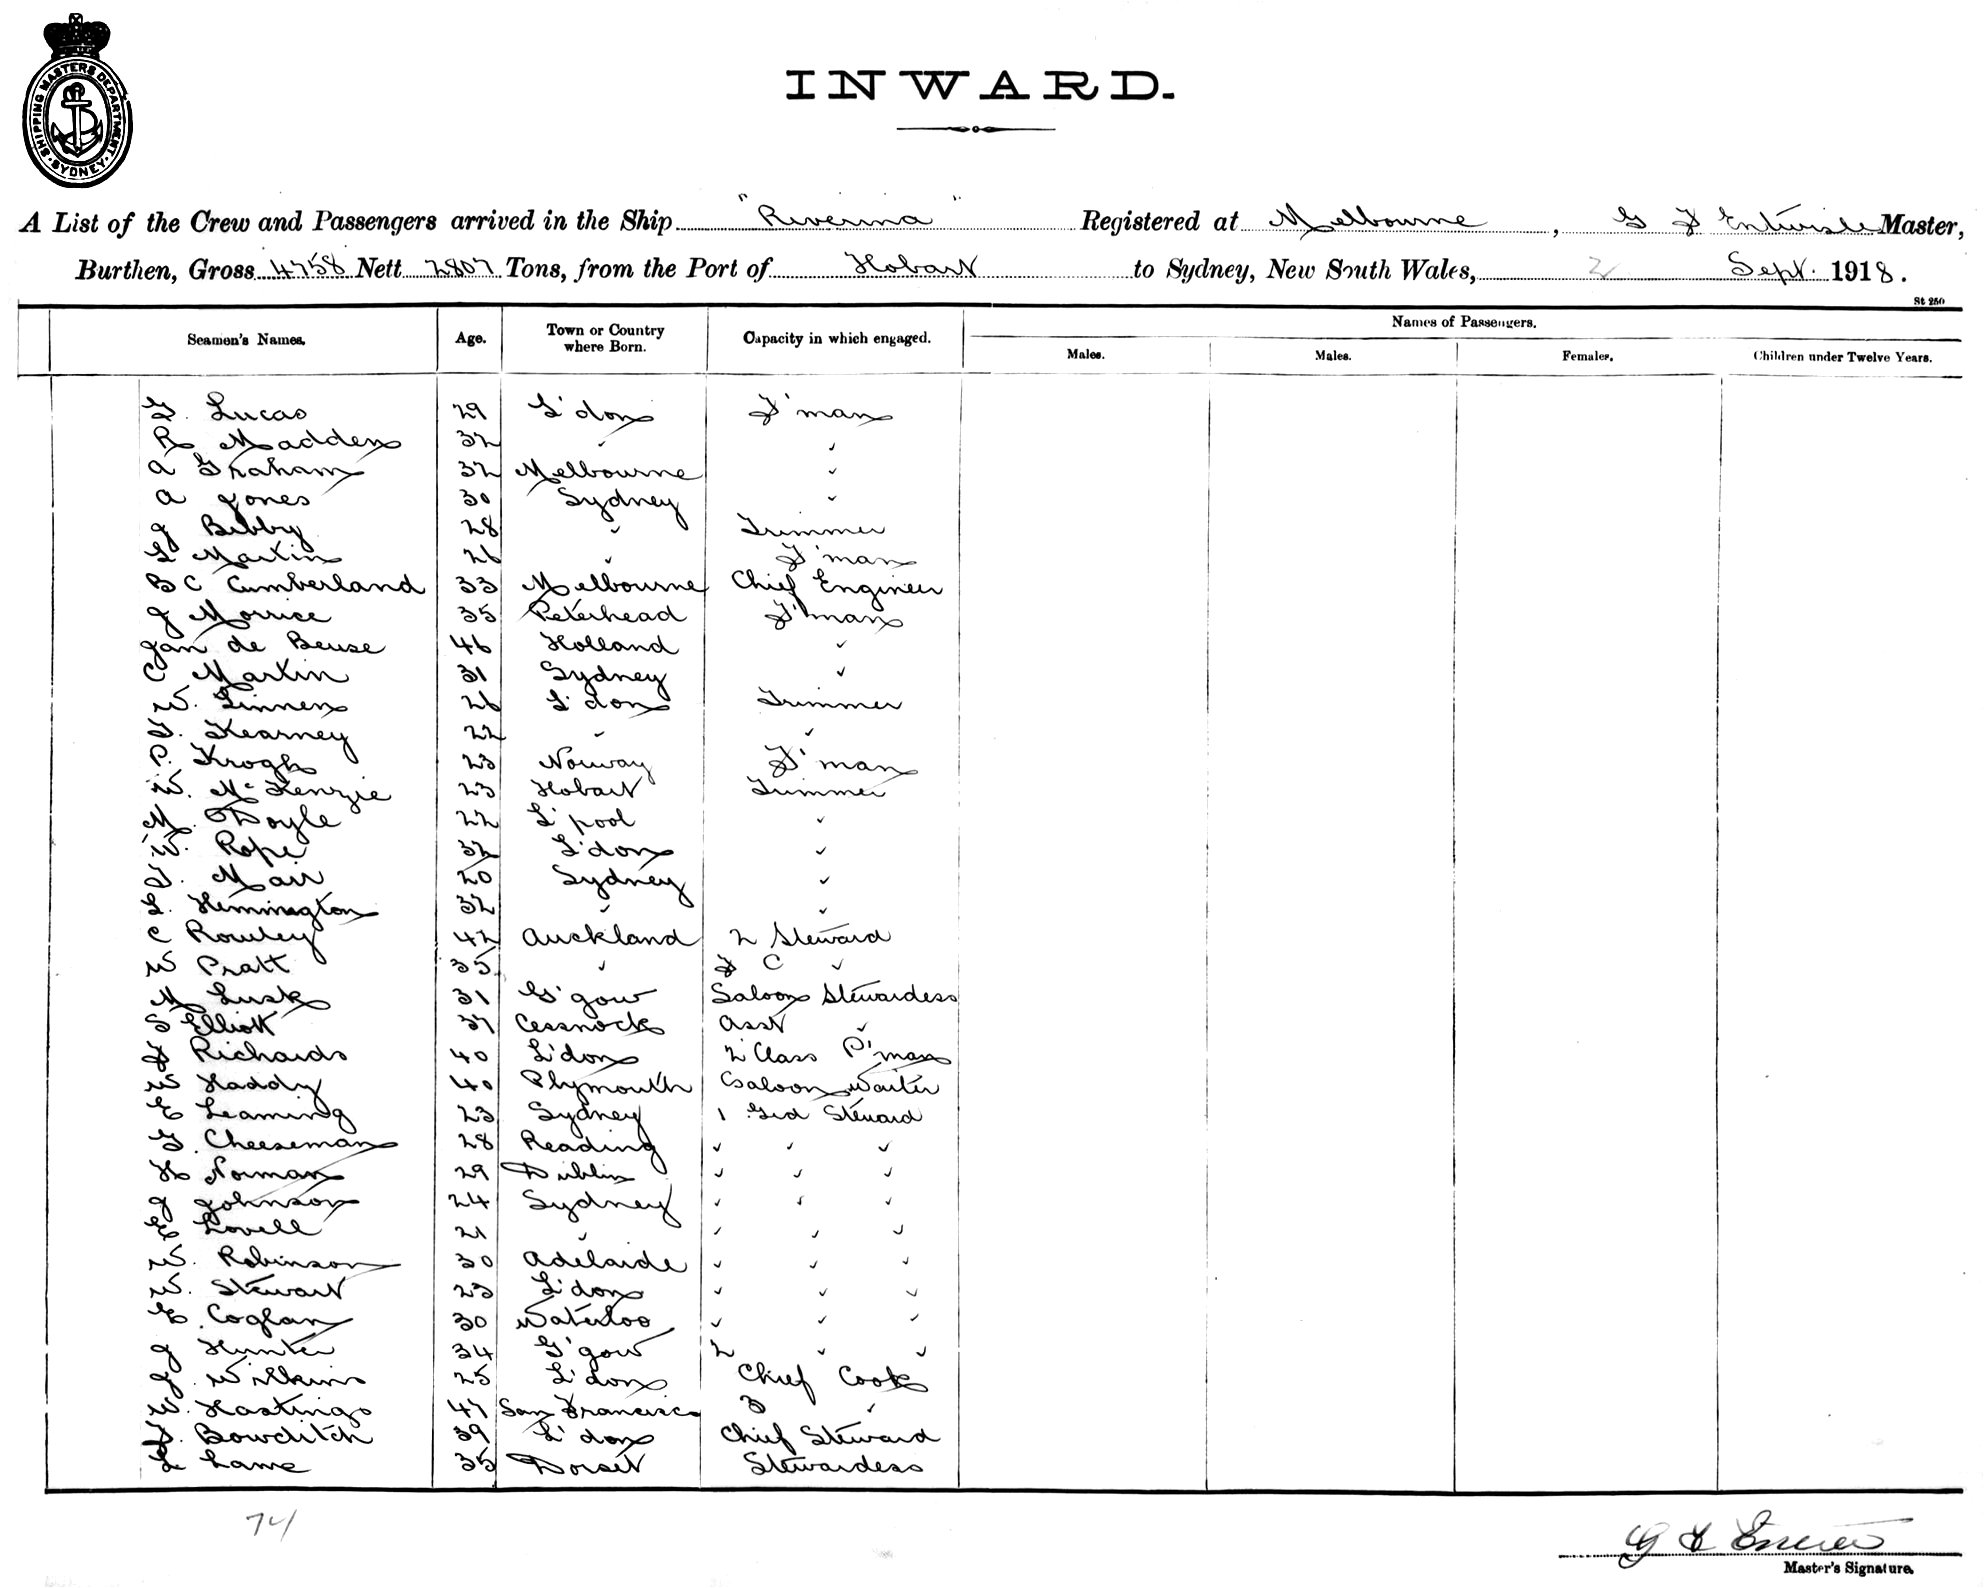 SHIPPING MASTERS DEPARTMENT SYDNEY
INWARD.
A List of the Crew and Passengers arrived in the Ship "Riverina" Registered at Melbourne, G F Entwisle Master,
Burthen, Gross 4758 Nett 2807 Tons, from the Port of Hobart to Sydney, New South Wales, 2 Sept. 1918.
St 250
Seamen's Names. Age. Town or Country where Born. Capacity in which engaged. Names of Passengers.
Males. Males. Females. Children under Twelve Years.
Lucas 29 L'don F'man
R Madden 32 " "
A Graham 32 Melbourne "
A Jones 30 Sydney "
J Bibby 28 " Trimmer
Martin 26 " F'man
B C Cumberland 33 Melbourne Chief Engineer
J Morrice 35 Peterhead F'man
Jan de Beuse 46 Holland "
C Martin 31 Sydney "
W. Linnen 26 L'don Trimmer
T. Kearney 22 " "
P. Krogh 23 Norway F'man
W. McKenzie 23 Hobart Trimmer
M. Doyle 22 L'pool "
W. Rope 32 L'don "
T. Mair 20 Sydney "
L. Hemmington 32 " "
C Rowley 42 Auckland 2 Steward
W Pratt 35 " F C "
M Lusk 31 G'gow Saloon Stewardess
S Elliott 37 Cessnock Asst "
F Richards 40 L'don 2 Class P'man
W Haddy 40 Plymouth Saloon Waiter
E Leaming 23 Sydney 1 Grd Steward
G. Cheeseman 28 Reading " " "
H Norman 29 Dublin " " "
J Johnson 24 Sydney " " "
E Lovell 21 " " " "
W. Robinson 30 Adelaide " " "
W. Stewart 23 L'don " " "
E. Coglan 30 Waterloo " " "
J Hunter 34 G'gow 2 " "
J. Wilkins 25 L'don Chief Cook
W. Hastings 47 San Francisco 3 "
T. Bowditch 39 L'don Chief Steward
L Lame 35 Dorset Stewardess
74
G F
Master's Signature.